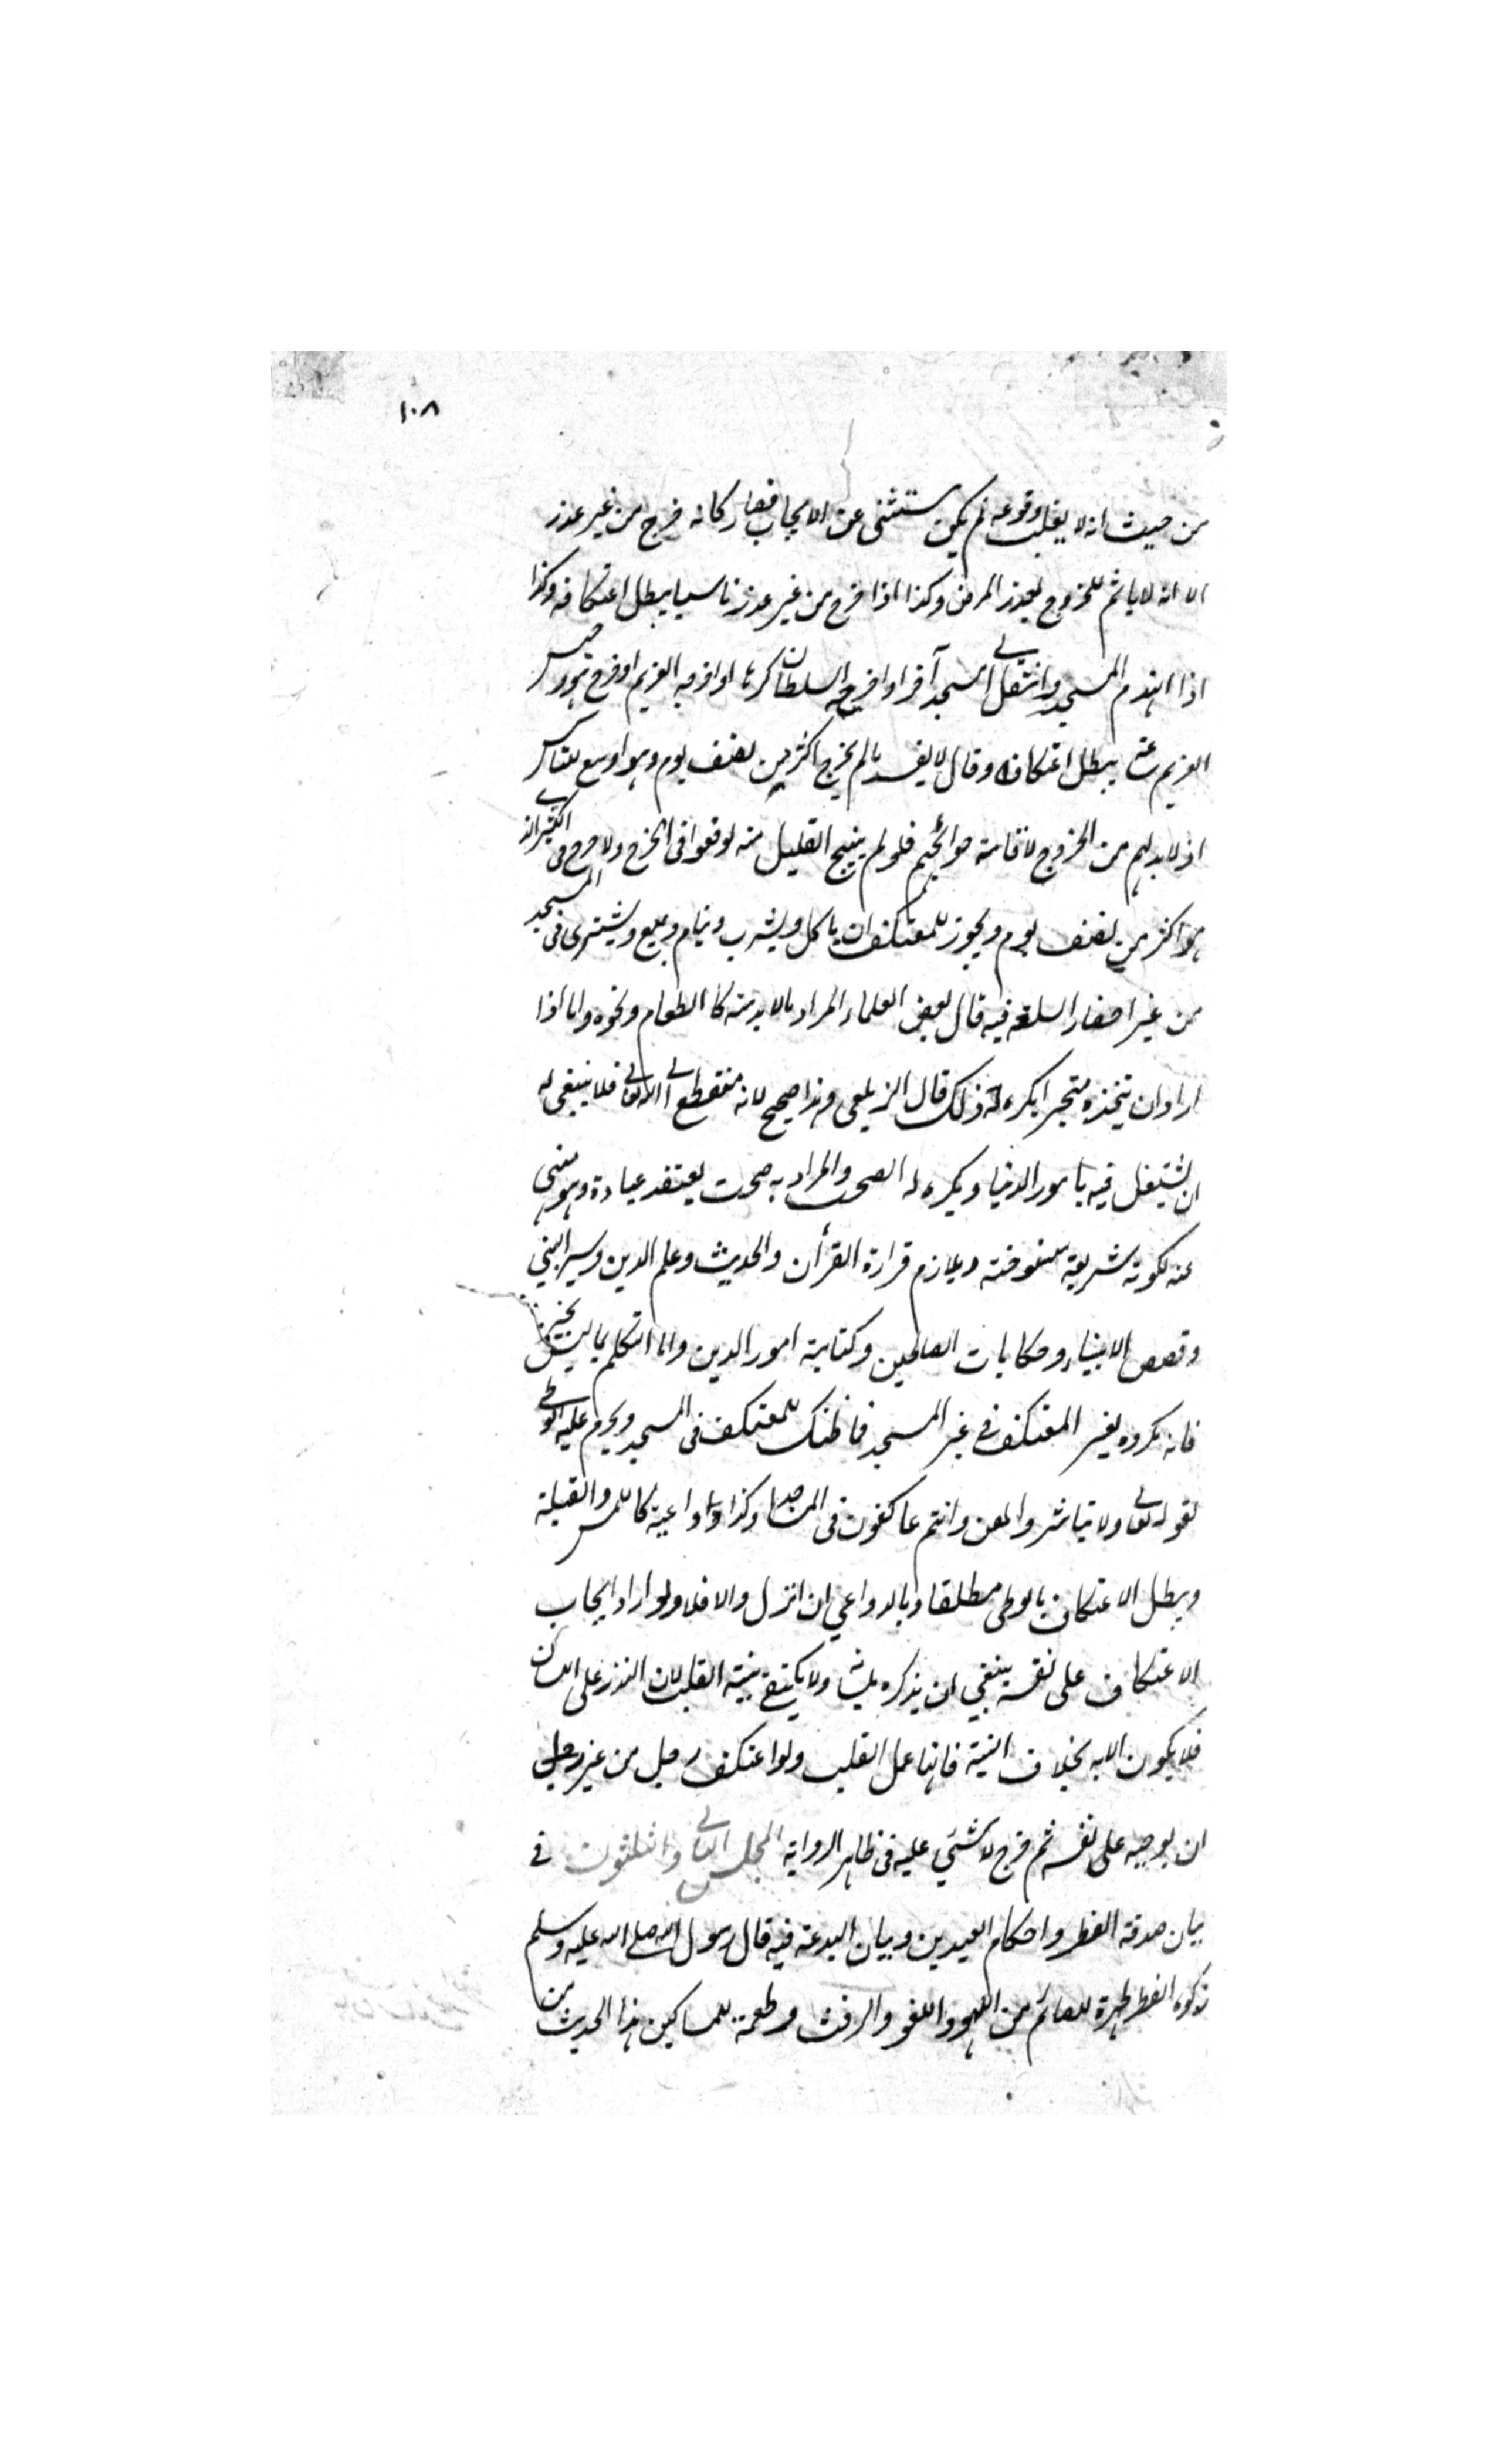 ١٠٨
من حيث انه لا يغلب وقوعه لم يكن مستثنى عن الايجاب فصار كانه خرج من غير عذر
الا انه لا ياثم للخروج بعذر المرض وكذا اذا خرج من غير عذر ناسيا يبطل اعتكافه وكذا
اذا انهدم المسجد وانتقل الى مسجد آخر او اخرجه السلطان كرها او اخرجه الغريم او خرج هو وحبس
الغريم ساعة يبطل اعتكافه وقال لا يفسد ما لم يخرج اكثر من نصف يوم وهو اوسع للناس
اذ لا بد لهم من الخروج لاقامة حوائجهم فلو لم يبيح القليل منه لوقعوا فى الحرج ولا حرج فى الكثير الذى
هو اكثر من نصف يوم ويجوز للمعتكف ان ياكل ويشرب وينام ويبيع ويشترى فى المسجد
من غير احضار السلعة فيه قال بعض العلماء المراد ما لا بد منه كالطعام ونحوه واما اذا
اراد ان يتخذه متجرا يكره له ذلك قال الزيلعى وهذا صحيح لانه منقطع الى الله تعالى فلا ينبغى له
ان يشتغل فيه بامور الدنيا ويكره له الصمت والمراد به صمت يعتقد عبادة وهو منهى
عنه لكونه شريعة منسوخة ويلازم قراءة القرأن والحديث وعلم الدين وسير النبي
وقصص الانبياء وحكايات الصالحين وكتابة امور الدين واما التكلم بما ليس بخير
فانه مكروه لغير المعتكف في غير المسجد فما ظنك للمعتكف فى المسجد ويحرم عليه الوطى
لقوله تعالى ولا تباشروهن وانتم عاكفون فى المساجد وكذا دواعيه كاللمس والقبلة
ويبطل الاعتكاف بالوطى مطلقا وبالدواعي ان انزل والا فلا ولو اراد ايجاب
الاعتكاف على نفسه ينبغي ان يذكره بلسانه ولا يكتفى بنية القلب لان النذر على اللسان
فلا يكون الا به بخلاف النية فانها عمل القلب ولو اعتكف رجل من غير
ان يوجبه على نفسه ثم خرج لا شئ عليه فى ظاهر الرواية المجلس الثانى والثلثون في
بيان صدقة الفطر واحكام العيدين وبيان البدعة فيه قال رسول الله صلى الله عليه وسلم
زكوة الفطر طهرة للصائم من اللهو واللغو والرفث وطعمة للمساكين هذا الحديث من